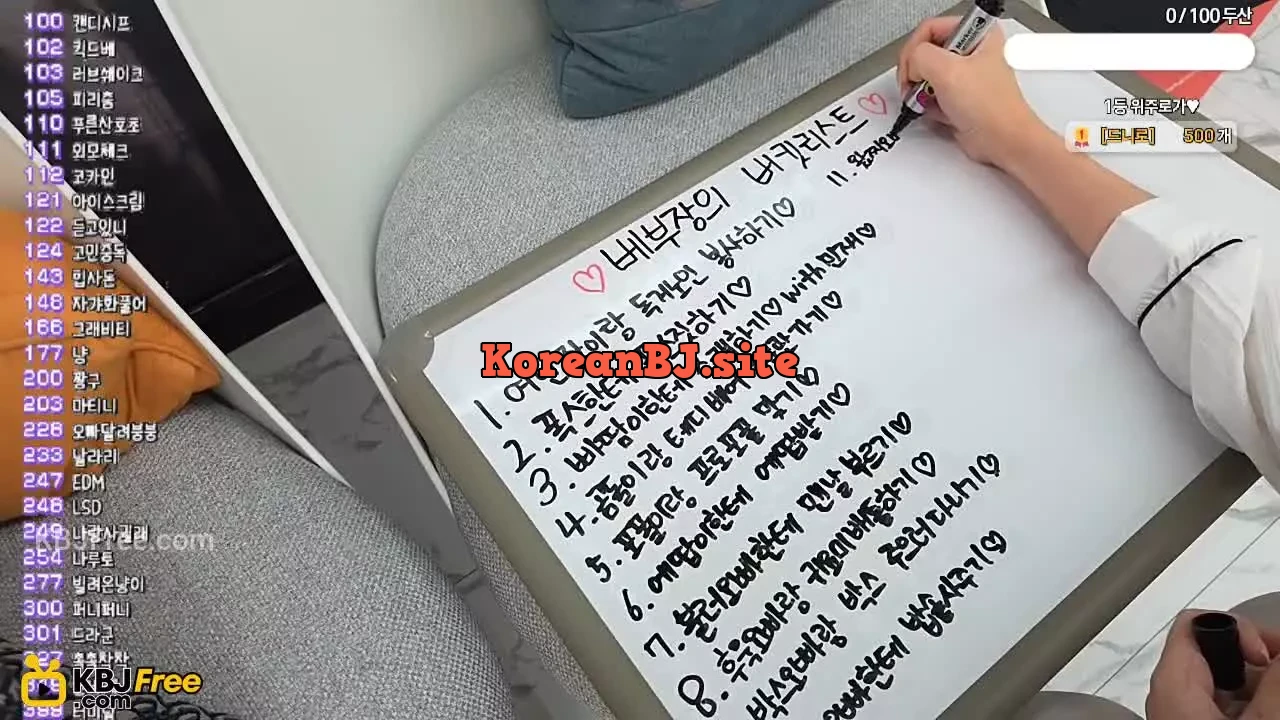 100 캔디시프
102 킥드배
103 러브쉐이코
105 피리춤
110 푸른산호초
111 외모체크
112 코카인
121 아이스크림
122 듣고있니
124 고민중독
143 힙사돈
148 자갸화풀어
166 그래비티
177 냥
200 짱구
203 마티니
226 오빠달려붕붕
233 날라리
247 EDM
248 LSD
249 나랑사귈래
254 나루토
277 빌려온냥이
300 퍼니퍼니
301 드라군
327
388
KBJFree.com
KBJFree.com
0/100 두산
1등 위주로가♥
1 [드니로] 500개
♡베부장의 버킷리스트♡
1. 독거노인 봉사하기♡
2. 폭스한테 하기♡
3. 빠띰이한테 하기♡ with 만재♡
4. 곰돌이랑 테디베어 가기♡
5. 포폴이랑 프로포폴 맞기♡
6. 애띱이한테 애띱받기♡
7. 불러오빠한테 맨날 부르기♡
8. 후후오빠랑 귀요미배틀하기♡
박스오빠랑 박스 주으러다니기♡
오빠한테 밥솥사주기♡
11.
KoreanBJ.site